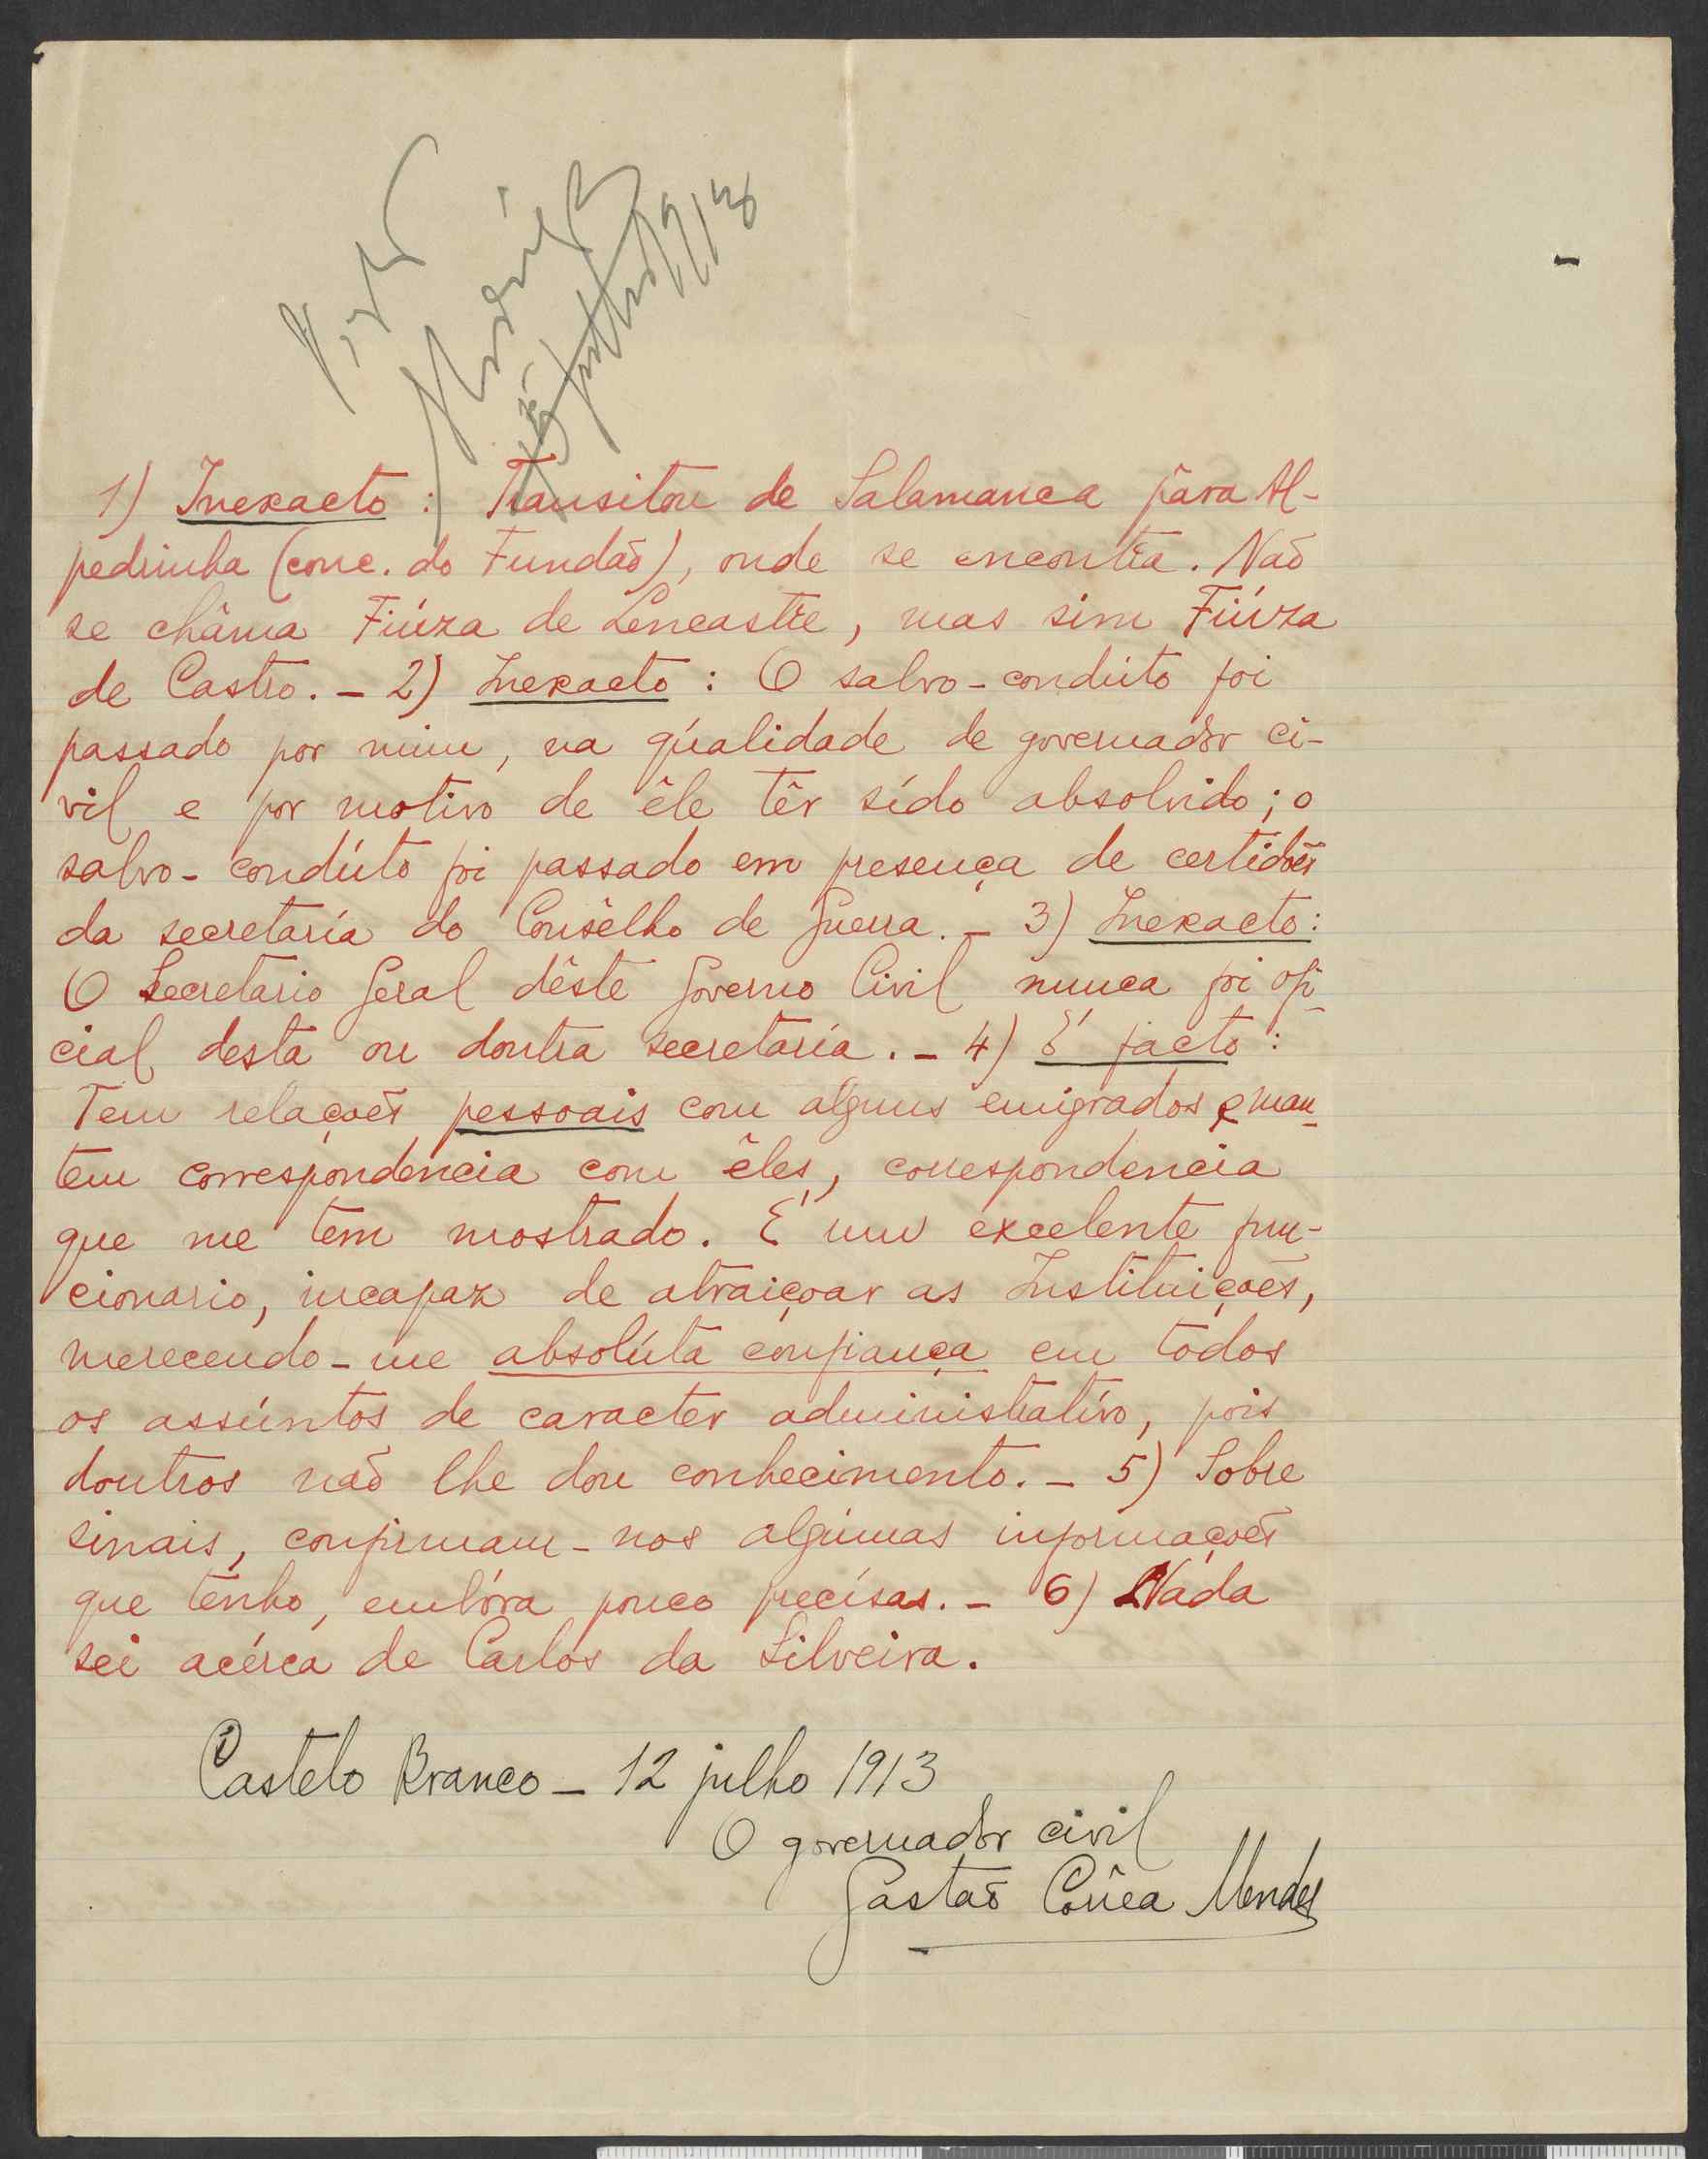 Visto
1913
1) Inexacto: Transitou de Salamanca pâra Al-
pedrinha (conc. do Fundão), onde se encontra. Não
se châma Fiúza de Lencastre, mas sim Fiúza
de Castro. - 2) Inexacto: O salvo-condúto foi
passado por mim, na qúalidade de governadôr ci-
vil e por motivo de êle têr sído absolvido; o
salvo-condúto foi passado em presença de certidões
da secretaría do Consêlho de Guerra. - 3) Inexacto:
O Secretario Geral dêste Governo Civil nunca foi ofi-
cial desta ou doutra secretaría. - 4) É facto:
Tem relações pessoais com alguns emigrados e man-
tem correspondencia com êles, correspondencia
que me tem mostrado. É um excelente fun-
cionario, incapaz de atraiçoar as Instituições,
merecendo-me absolúta confiança em todos
os assúntos de caracter administratívo, pois
doutros não lhe dou conhecimento. - 5) Sobre
sinais, confirmam-nos algúmas informações
que tenho, embóra pouco precísas. - 6) Náda
sei acérca de Carlos da Silveira.
Castelo Branco - 12 julho 1913
O governadôr civil
Gastão Corrêa Mendes